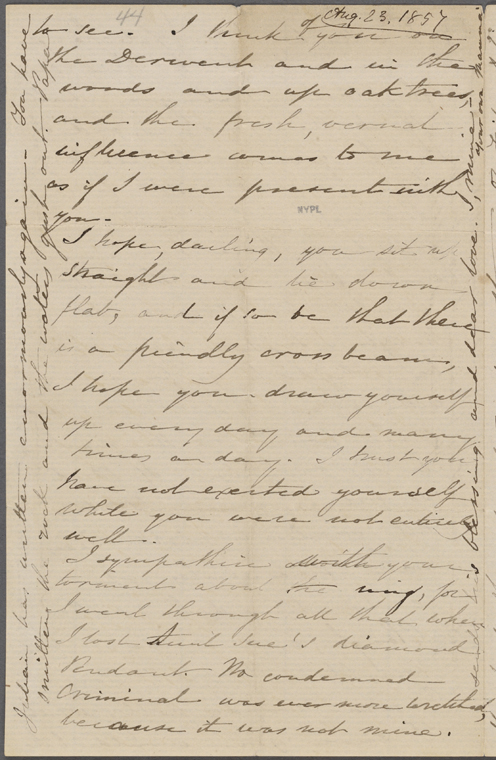 44
of Aug. 23. 1857
to see. I think you on
the Derwent and in the
woods and up oaktrees,
and the fresh, vernal
influence comes to me
as if I were present with
you.
NYPL
I hope, darling, you sit up
straight and lie down
flat, and if so be that there
is a friendly crossbeam,
I hope you draw yourself
up every day and many
times a day. I trust you
have not exerted yourself
while you were not entirely
well.
I sympathize with your
torment about the ring, for
I went through all that when
I lost Aunt Sue's diamond
Pendant. No condemned
Criminal was ever more wretched,
because it was not mine.
Julian has written enormously again. You have
smitten the rock and the waters gush out. Papa
sends his blessing and dear love.
your own mama